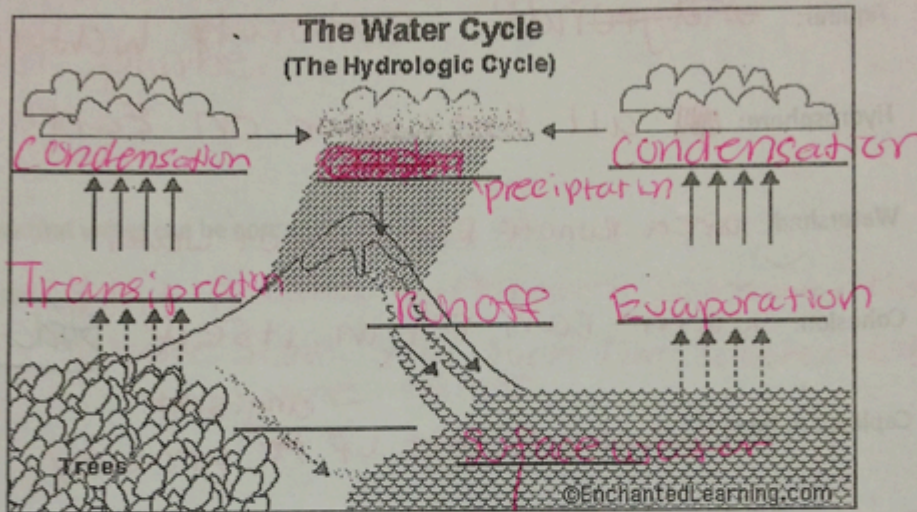 The Water Cycle
(The Hydrologic Cycle)
Condensation
Condensation
preciptation
Transipration
runoff
Evaporation
Surfacewater
Trees
©EnchantedLearning.com